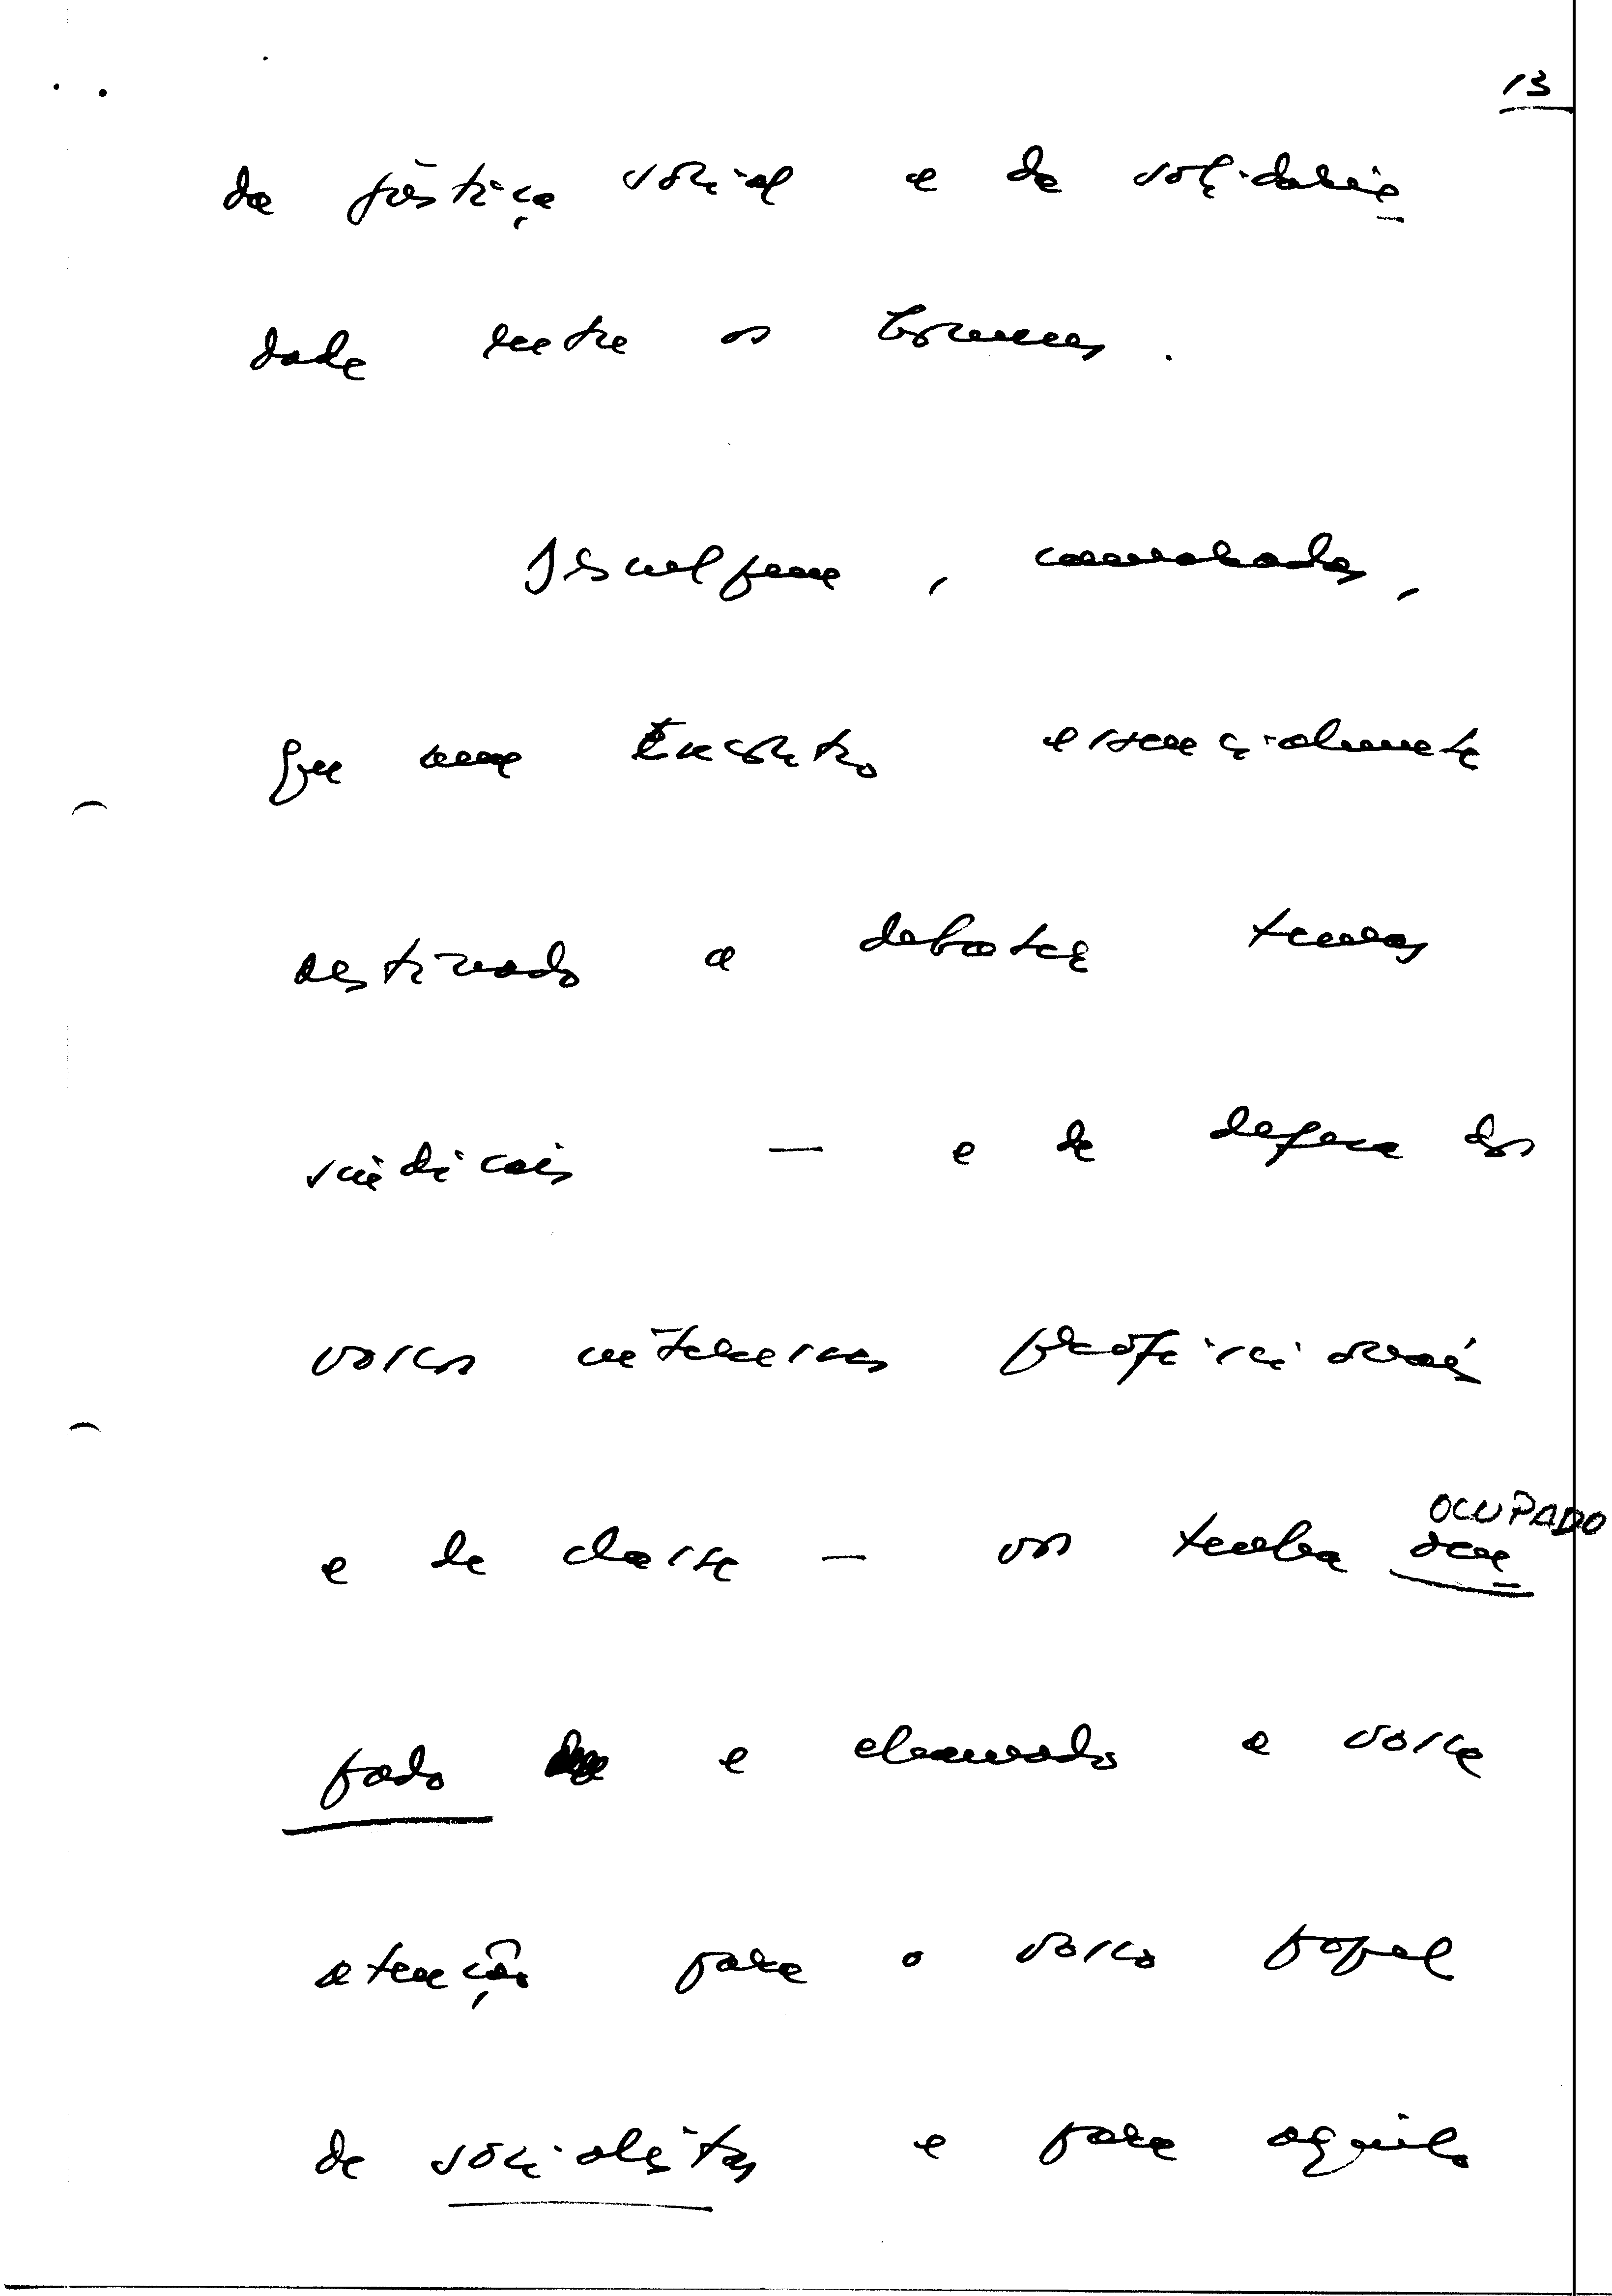 13
da justiça social e da solidarie
dade entre os homens.
Desculpem, camaradas,
que num Encontro essencialmente
destinado a debater temas
sindicais — e de defesa dos
vossos interesses profissionais
e de classe — vos tenha ocu
OCUPADO
pado e chamado a vossa
atenção para o vosso papel
de socialistas e para aquilo